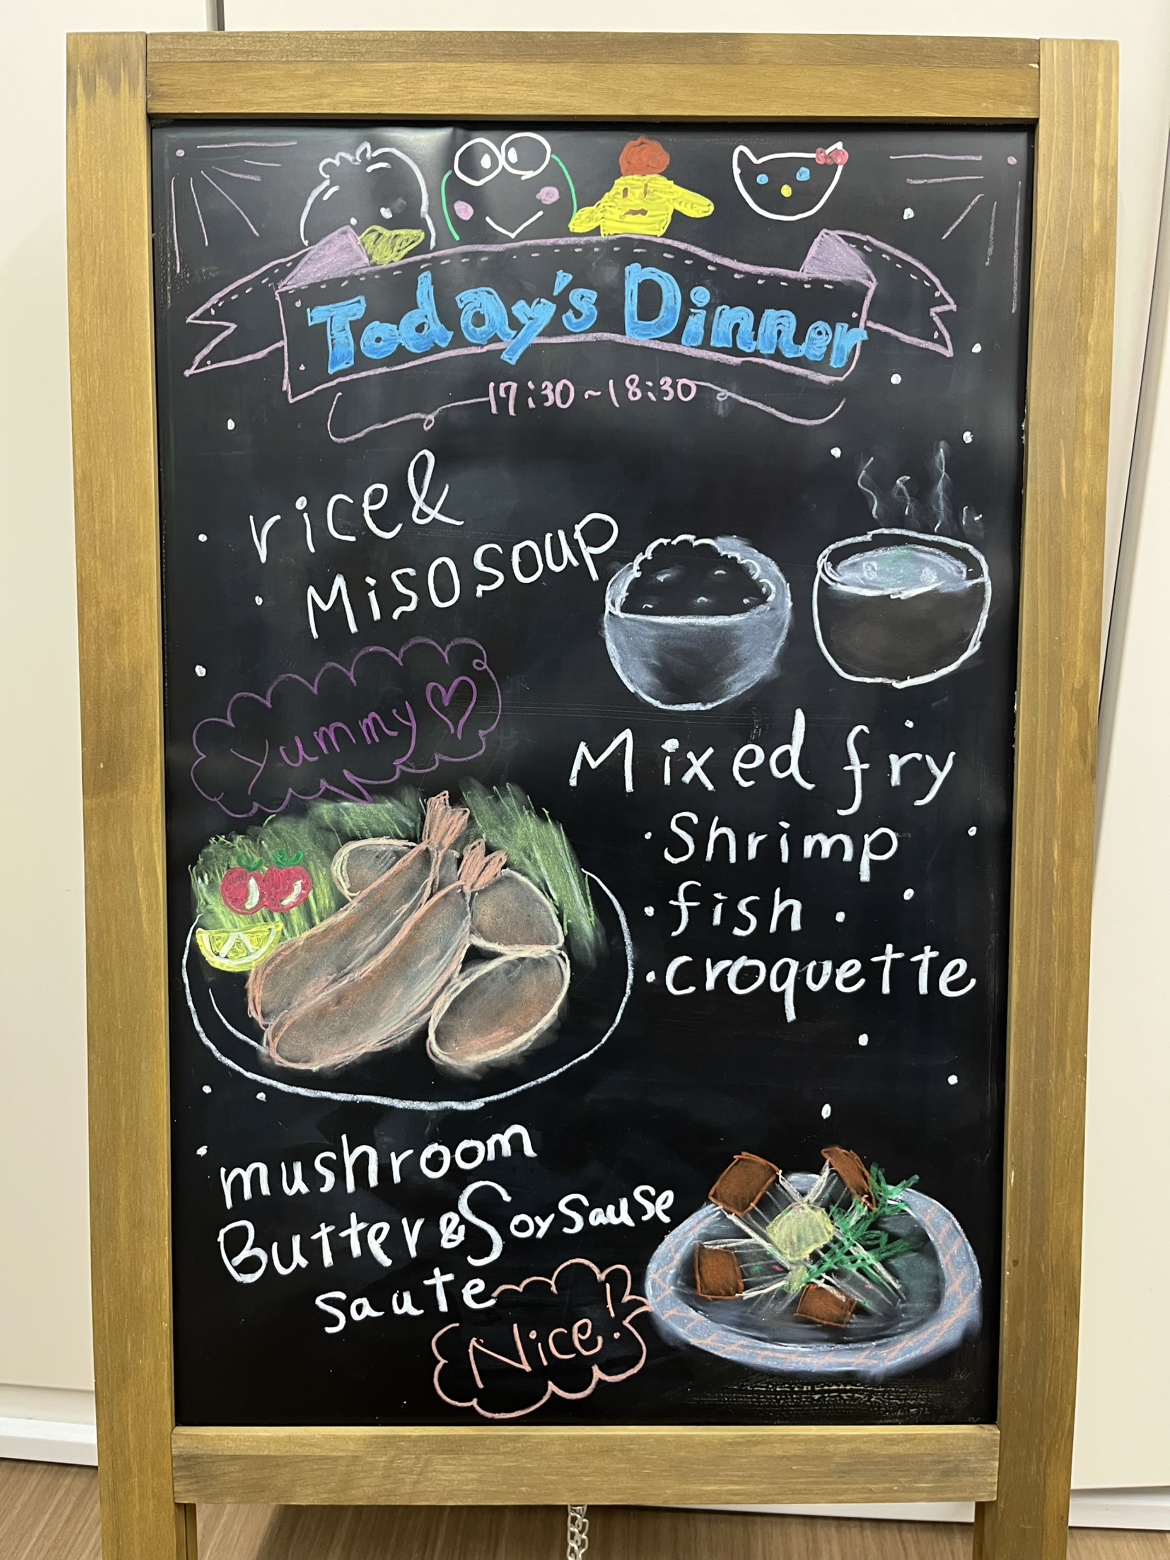 Today's Dinner
17:30~18:30
rice &
Miso soup
Yummy♡
Mixed fry
・Shrimp
・fish
・croquette
mushroom
Butter & Soy sause
saute
Nice!